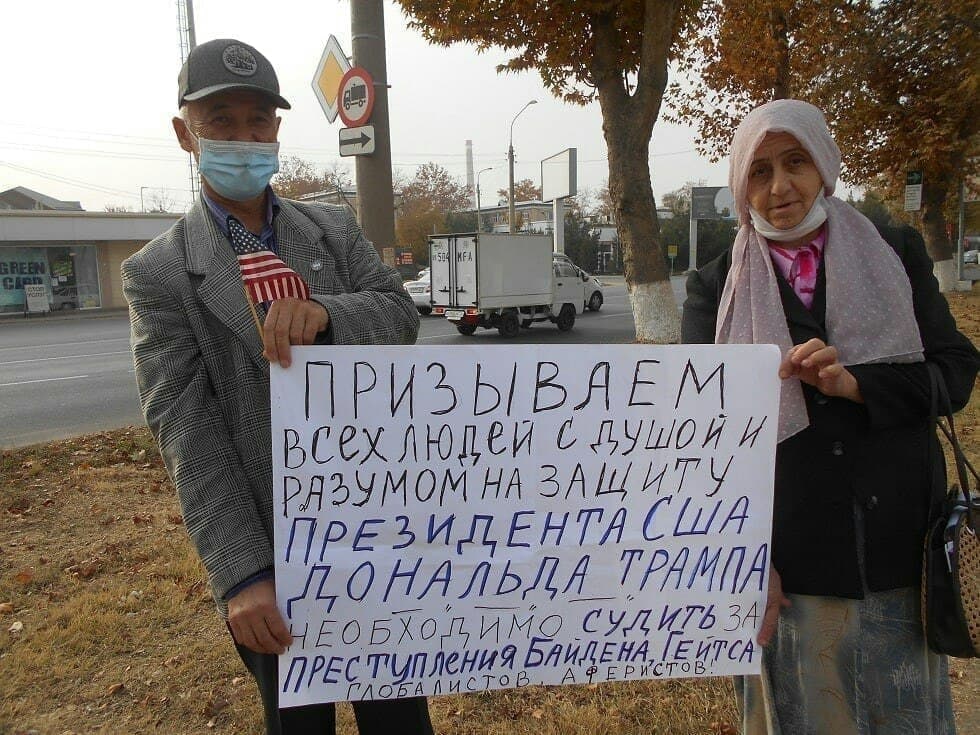 ПРИЗЫВАЕМ
ВСЕХ ЛЮДЕЙ С ДУШОЙ И
РАЗУМОМ НА ЗАЩИТУ
ПРЕЗИДЕНТА США
ДОНАЛЬДА ТРАМПА
НЕОБХОДИМО СУДИТЬ ЗА
ПРЕСТУПЛЕНИЯ БАЙДЕНА, ГЕЙТСА
ГЛОБАЛИСТОВ, АФЕРИСТОВ!
GREEN
CARD
504 MFA